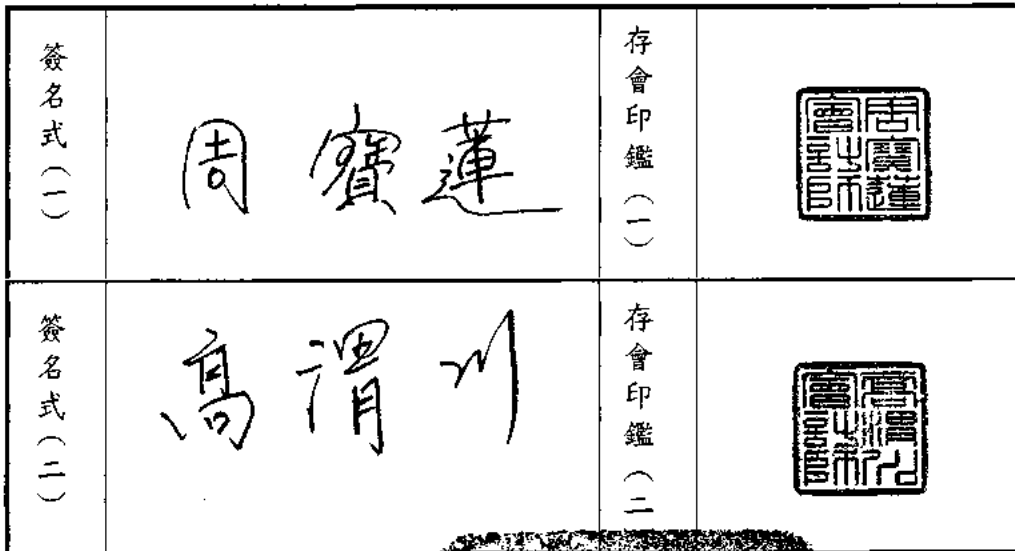 簽名式（一）
周寶蓮
存會印鑑（一）
周寶蓮會計師
簽名式（二）
高渭川
存會印鑑（二
高渭川會計師